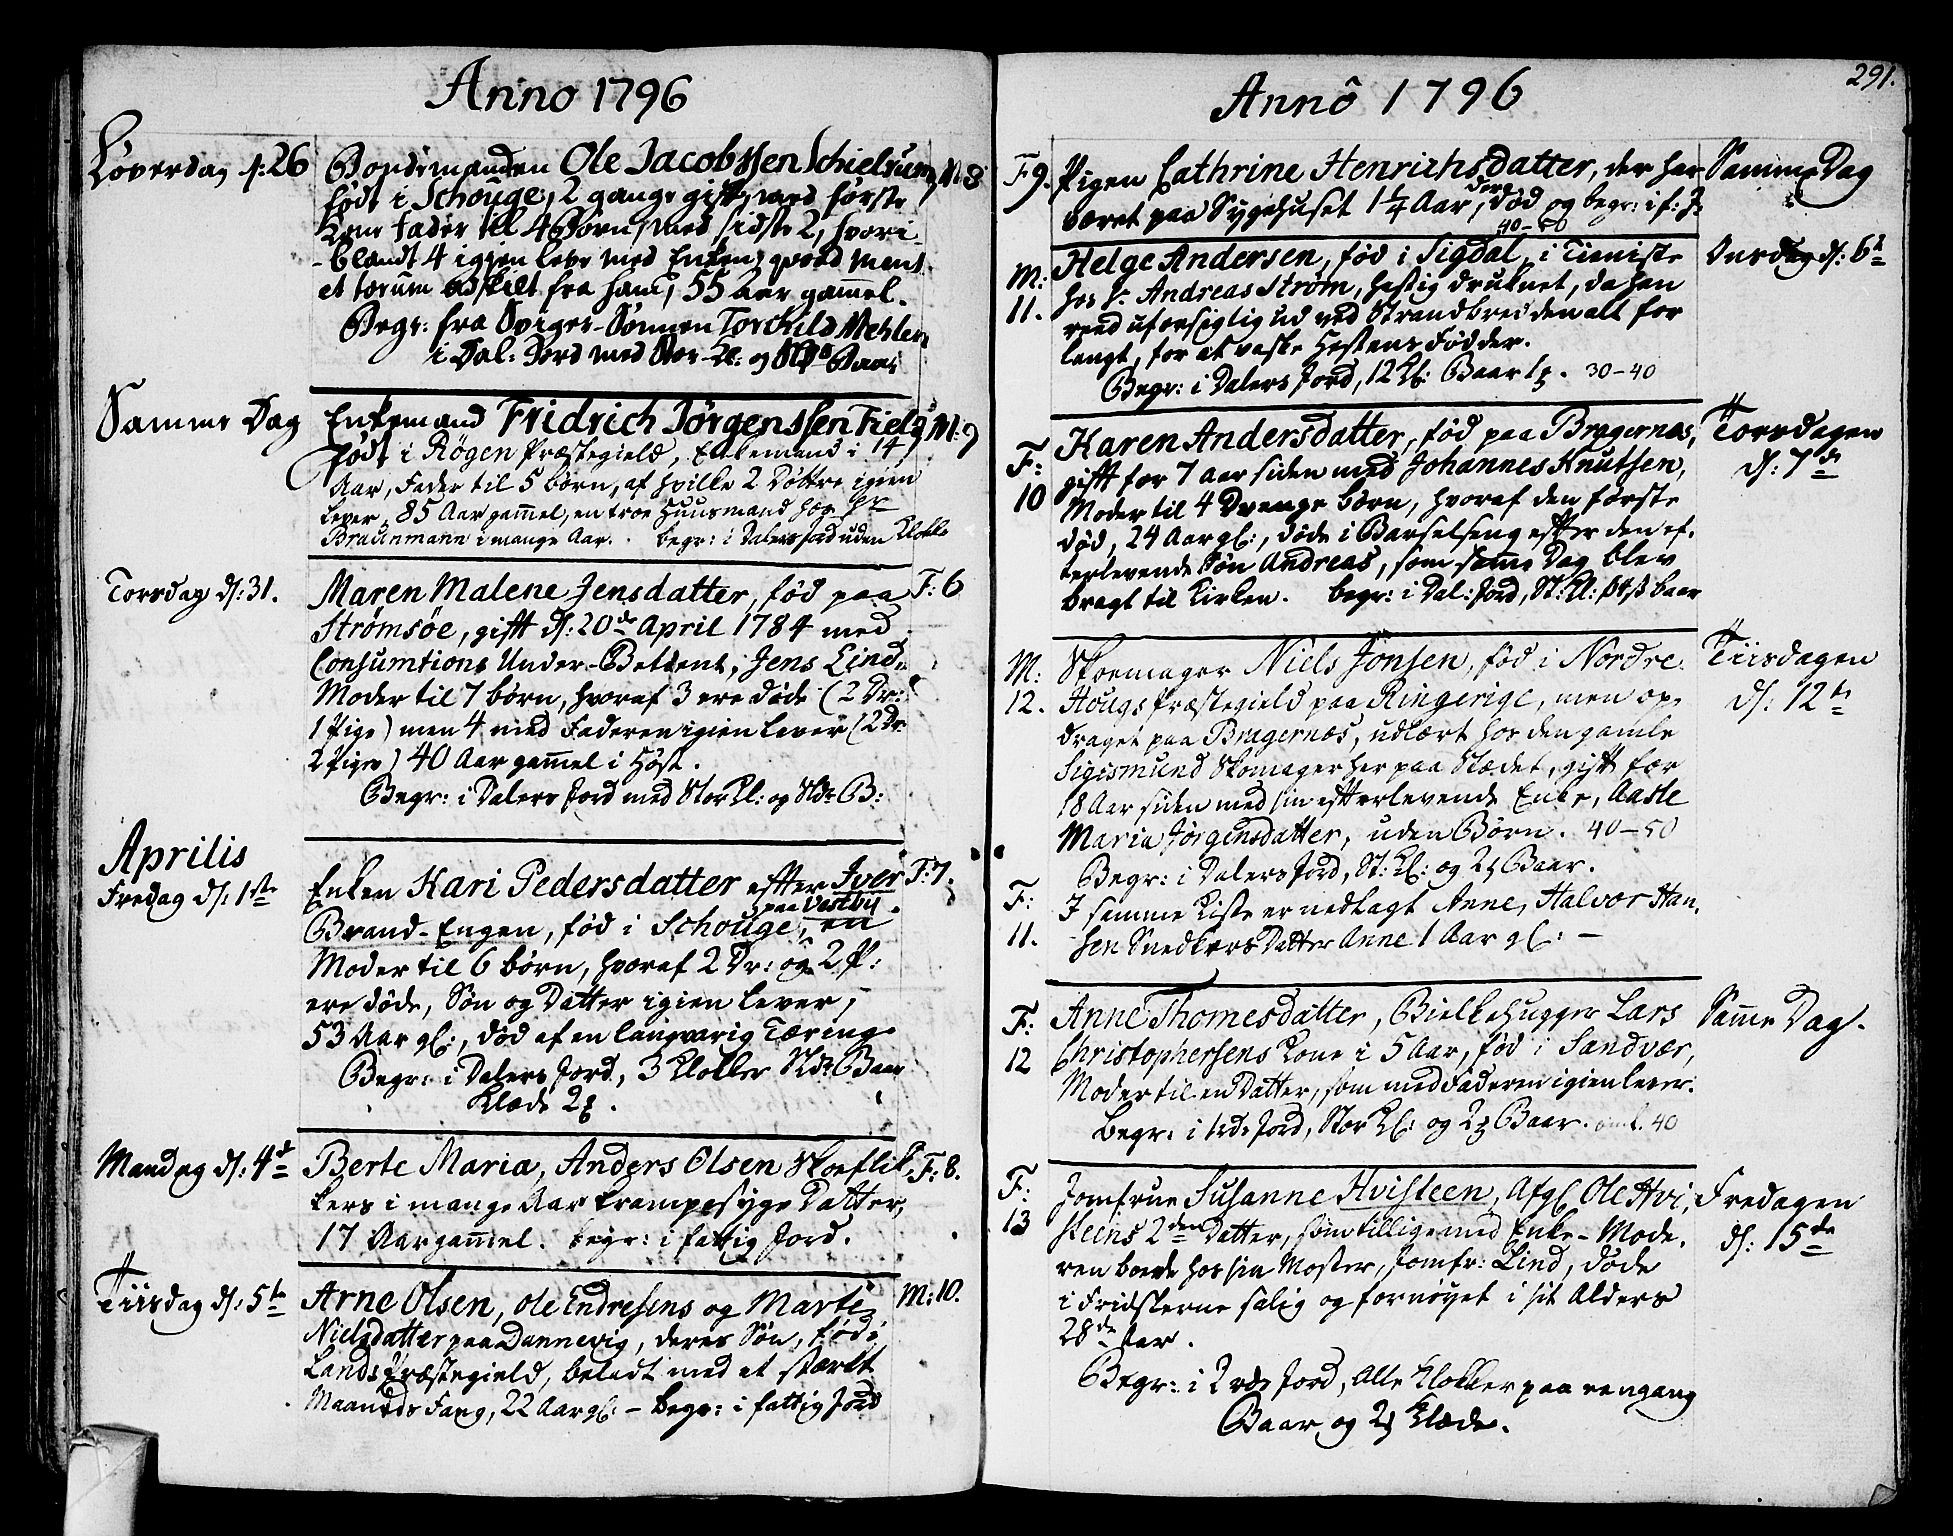 Anno 1796
Löverdag d: 26
Bondemanden Ole Jacobssen Schielrum, M: 8
födt i Schouge, 2 gange gift, med første
Kone Fader til 4 Børn, med sidste 2, hvori-
-blandt 4 igien leve med Enken, qvoad mens.
et torum adskilt fra ham, 55 Aar gam̄el.
Begr: fra Spiger-Sønnen Torchild Mehlen
i Dal: Jord med Stor Kl: og Baar
Samme Dag
Enkemand Fridrich Jörgenssen Field, M: 9
födt i Rögen Præstegield, Enkemand i 14
Aar, Fader til 5 børn, af hvilke 2 Döttre igien
lever, 85 Aar gam̄el, en troe Huusmand hos Hr
Braunmann i mange Aar. begr: i Dalers Jord uden Klokke
Torsdag d: 31.
Maren Malene Jensdatter, fød paa F: 6
Strømsöe, gift d: 20de April 1784 med
Consumtions Under-Betient, Jens Lind,
Moder til 7 börn, hvoraf 3 ere döde (2 Dr:
1 Pige) men 4 med Faderen igien lever (2 Dr.
2 Piger) 40 Aar gam̄el i Höst.
Begr: i Dalers Jord med Stor Kl: og Sldr B:
Aprilis
Fredag d: 1ste
Enken Kari Pedersdatter efter Iver F: 7.
paa Vestby
Brand-Engen, fød i Schouge, en
Moder til 6 börn, hvoraf 2 Dr: og 2 P:
ere döde, Sön og Datter igien lever,
53 Aar gl:, död af en langvarig Tæring
Begr: i Dalers Jord, 3 Klokker Sldr Baar
Klæde 2
Mandag d: 4de
Berte Maria, Anders Olsen Skoeflik- F: 8.
kers i mange Aar krampesyge Datter,
17 Aar gam̄el. begr: i fattig Jord.
Tiisdag d: 5te
Arne Olsen, Ole Endresens og Marte M: 10.
Nielsdatter paa Dannevig, deres Sön, föd i
Lands Præstegield, beladt med et stærkt
Maaneds Fang, 22 Aar gl: - begr: i fattig Jord
291.
Annô 1796
F 9. Pigen Cathrine Henrichsdatter, der har Samme Dag
været paa Sygehuset 1 1/4 Aar, der död og begr: i f: J:
40-50
M: 11. Helge Andersen, föd i Sigdal, i Tieniste Onsdag d: 6te
hos Hr Andreas Strøm, hastig druknet, da han
reed uforsigtig ud ved Strandbredden alt for
langt, for at vaske Hestens Födder.
Begr: i Dalers Jord, 12 Kl: Baar 1. 30-40
F: 10 Karen Andersdatter, föd paa Bragernæs, Torsdagen d: 7de
gift for 7 Aar siden med Johannes Knutsen,
Moder til 4 Drenge börn, hvoraf den förste
död, 24 Aar gl:, döde i Barselseng efter den ef-
terlevende Sön Andreas, som samme Dag blev
bragt til Kirken. begr: i Dal: Jord, St: Kl: baar
M: 12. Skomager Niels Jonsen, föd i Nordre Tiisdagen d: 12te
Hougs Præstegield paa Ringerige, men op-
draget paa Bragernæs, udlært hos den gamle
Sigismund Skomager her paa Stædet, gift for
18 Aar siden med sin efterlevende Enke, Aasle
Maria Jørgensdatter, uden Børn. 40-50
Begr: i Dalers Jord, St: Kl: og 2 Baar.
F: 11. I samme Kiste er nedlagt Anne, Halvor Han-
sen Snedkers Datter Anne 1 Aar gl: -
F: 12 Anne Thomesdatter, Bielkehugger Lars Sam̄e Dag.
Christophersens Kone i 5 Aar, föd i Sandvær,
Moder til en Datter, som med Faderen igien lever.
Begr: i Jord, Stor Kl: og 2 Baar. oml. 40
F: 13 Jomfrue Susanne Hvisteen, Afgl Ole Hvi- Fredagen d: 15de
steens 2den Datter, som tilligemed Enke-Mode-
ren boede hos sin Moster, Jomfr: Lind, döde
i Fridskerne salig og fornöyet i sit Alders
28de Aar.
Begr: i Jord, Alle Klokker paa een gang
Baar og 2 Klæde.